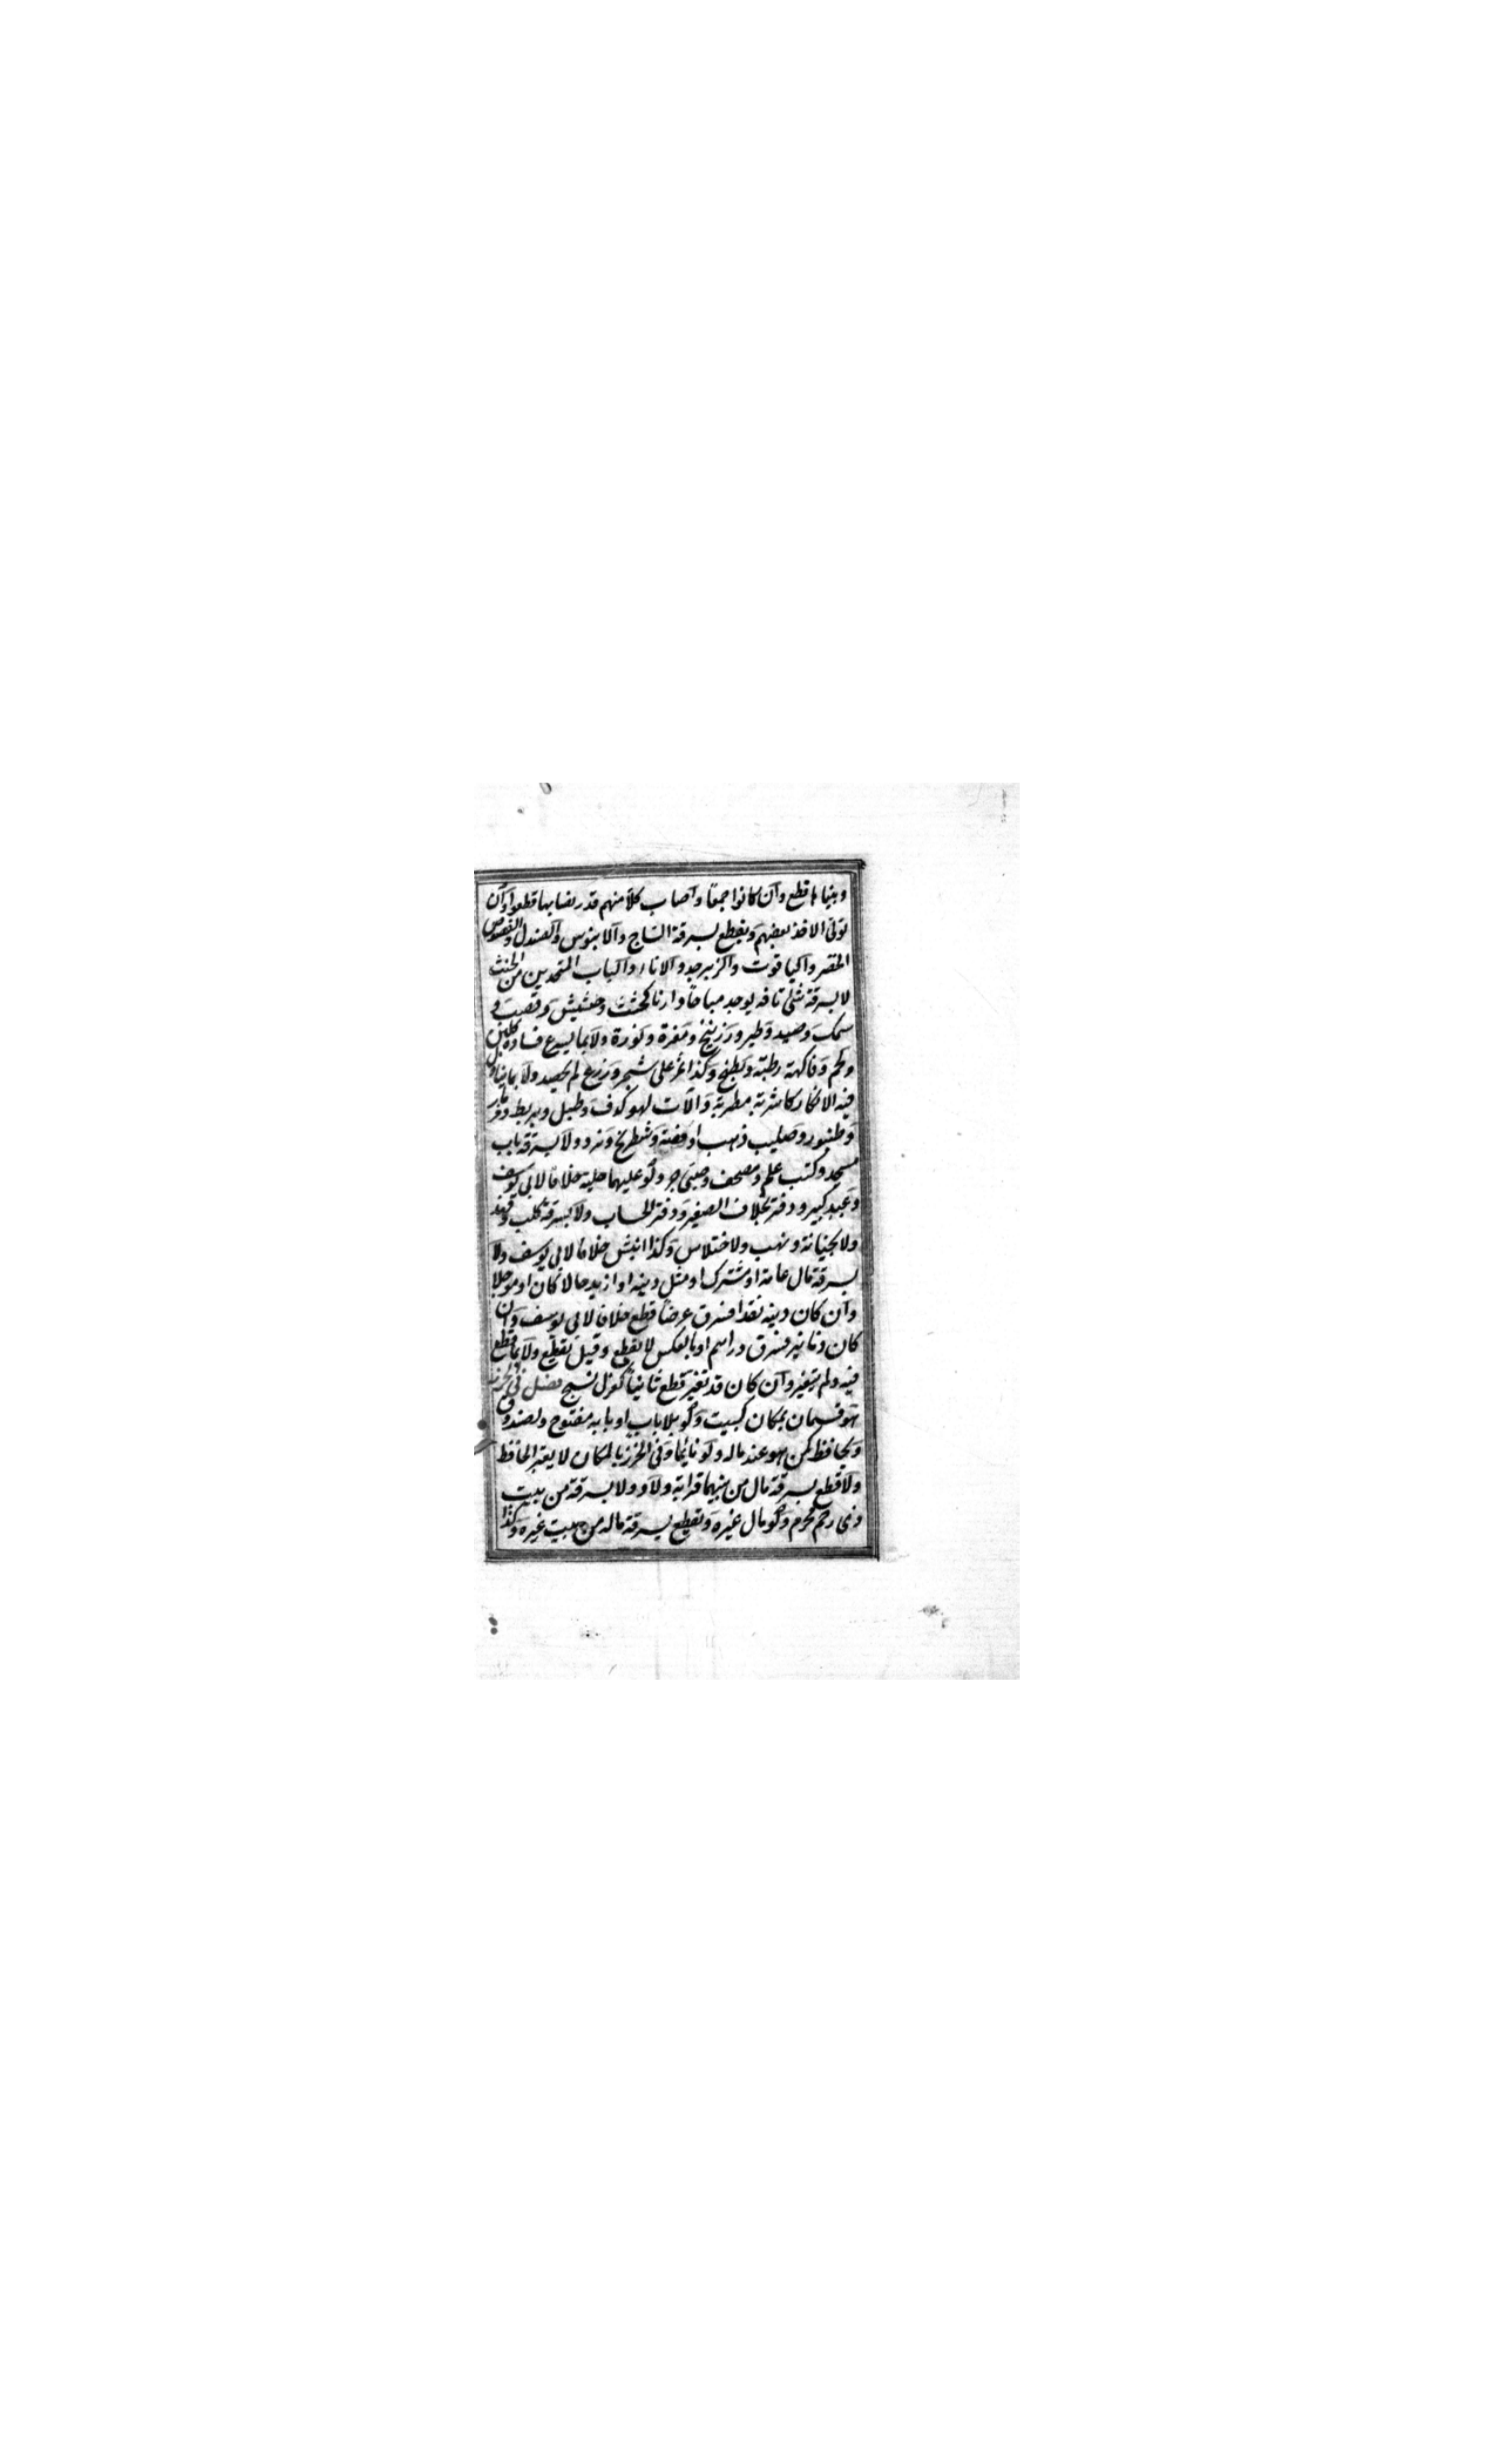 وبيناها قطع وان كانوا جمعا واصاب كلا منهم قدر نصابها قطعوا وان
تولى الاخذ بعضهم ويقطع بسرقة الساج والابنوس والصندل والفصوص
الخضر والياقوت والزبرجد والاناء والباب المتخذين من الخشب
لا بسرقة شئ تافه يوجد مباحا في دارنا كخشب وحشيش وقصب و
سمك وصيد وطير وزرنيخ ومغرة ونورة ولا بما يسرع فساده كلبن
ولحم وفاكهة رطبة وبطيخ وكذا ثمر على شجر وزرع لم يحصد ولا بما يتاول
فيه الانكار كاشربة مطربة والآت لهو كدف وطبل وبربط ومزمار
وطنبور وصليب ذهب او فضة وشطرنج ونرد ولا بسرقة باب
مسجد وكتب علم ومصحف وصبى حر ولو عليهما حلية خلافا لابى يوسف
وعبد كبير ودفتر بخلاف الصغير ودفتر الحساب ولا بسرقة كلب وفهد
ولا بخيانة ونهب ولا اختلاس وكذا النبش خلافا لابى يوسف ولا
بسرقة مال عامة او مشترك او مثل دينه او ازيد حالا كان او مؤجلا
وان كان دينه نقدا فسرق عرضا قطع خلافا لابى يوسف وان
كان دنانير فسرق دراهم او بالعكس لا يقطع وقيل يقطع ولا بما قطع
فيه ولم يتغير وان كان قد تغير قطع ثانيا كغزل نسج فصل فى الحرز
هو قسمان بمكان كبيت ولو بلا باب او بابه مفتوح وصندوق
وبحافظ كمن هو عند ماله ولو نائما وفى الحرز بالمكان لا يعتبر الحافظ
ولا قطع بسرقة مال من بينهما قرابة ولاد ولا بسرقة من بيت
ذى رحم محرم ولو مال غيره ويقطع بسرقة ماله من بيت غيره وكذا